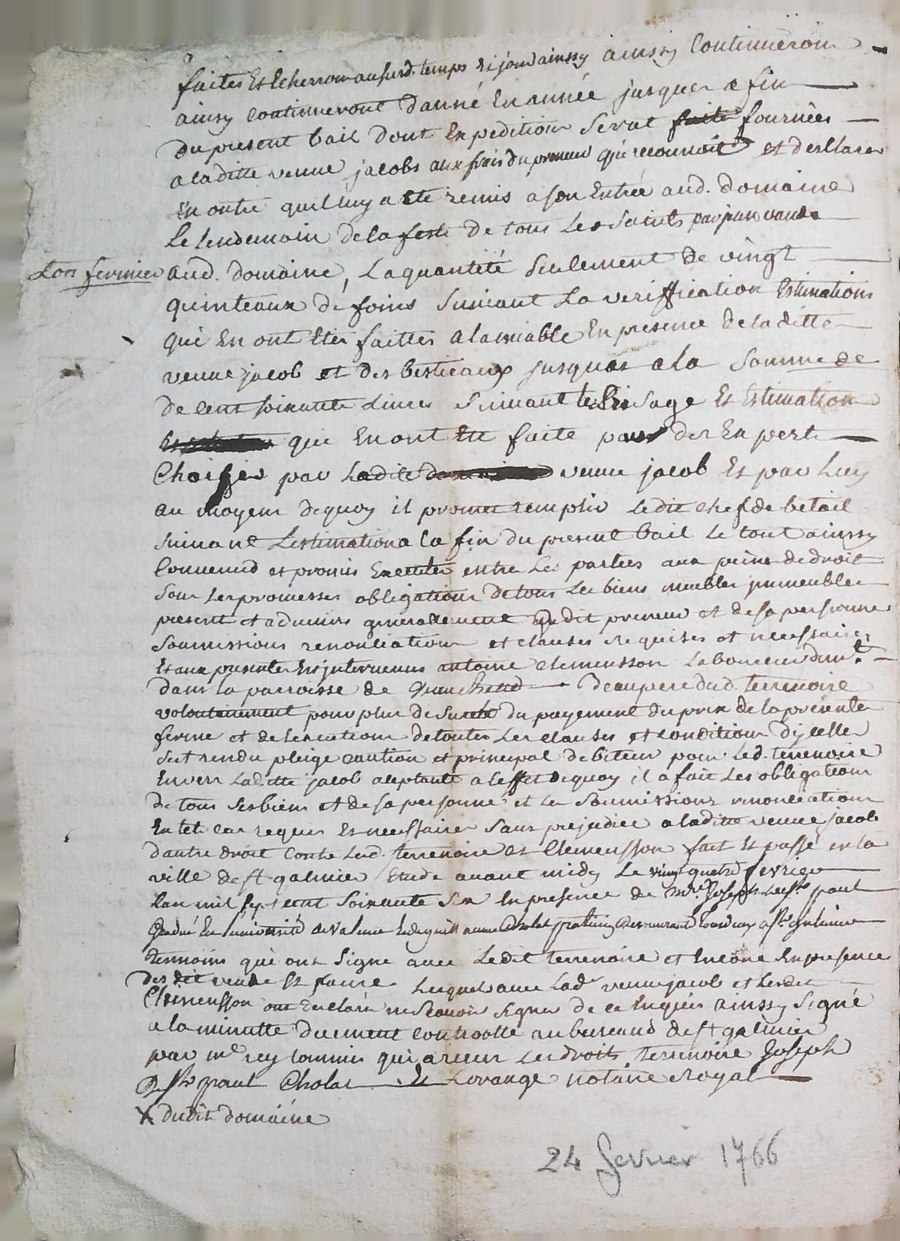 faites Et Echerron ausurd. temps et jour ainssy ainssy Continueron
ainsy continueront danné En année jusques a fin
du present bail dont Expedition Serat faite fournies
a laditte veuve jacobs aux frais du preneur qui reconnoit et desclare
En outre quil luy a Ete remis a son Entrée aud. domaine
Le lendemain de la feste de tous Les Saints par
Lors fermier
aud. domaine, La quantité Seulement de vingt
quinteaux de foins Suivant La veriffication Estimations
qui En ont Eté faittes a lamiable En presence de laditte
veuve jacob et des bestieaux jusques a la Somme de
de Cent soixante Livres Suivant Et Estimation
qui En ont Ete faite par des Expert
Choisses par Ladite veuve jacob Et par Luy
au moyens dequoy il promet remplir Ledit chef de betail
Suivant Lestimation a la fin du present bail Le tout ainssy
Convenud et promis Executer entre Les parties aux peine de droit
Sous Les promesses obligations de tous Les biens meubles jmmeubles
present et advenirs generallement dudit preneur et de sa personne
Soumissions renontiation et clauses requises et necessaires
Et aux presentes Est jntervenus antoine clemensson Laboureur
dans la parroisse de Beaupere dud. terrenoire
volontairement pour plus de Sureté du payement du prix de la presente
ferme et de lexecution de toutes Les clauses et conditions dycelle
Sest rendu pleige caution et principal debiteur pour Led. terrenoire
Envers Laditte jacob aceptante a leffet dequoy il a fait Les obligations
de tous Ses biens et de sa personne et Les Soumissions renontiations
En tel cas requis Et necessaire Sans prejudice a laditte veuve jacob
dautre droit Contre Lesd. terrenoire et Clemensson fait Et passé en la
ville de st galmier Etude avant midy Le vingt quatre fevrier
Lan mil sept cent Soixante Six En presence de mre. Joseph paul
Gradué En luniversité de valence
temoins qui ont Signé avec Ledit terrenoire et Encore En presence
des Et faure Lesquels avec Lad. veuve jacob et Ledit
Clemensson ont Enclaré ne Scavoir Signer de ce Enquis ainssy Signé
a la minutte duement controlle au bureaud de st galmier
par me. rey commis qui a receu Les droits terrenoire Joseph
paul Cholat Et Lorange notaire Royal
X dudit domaine
24 fevrier 1766